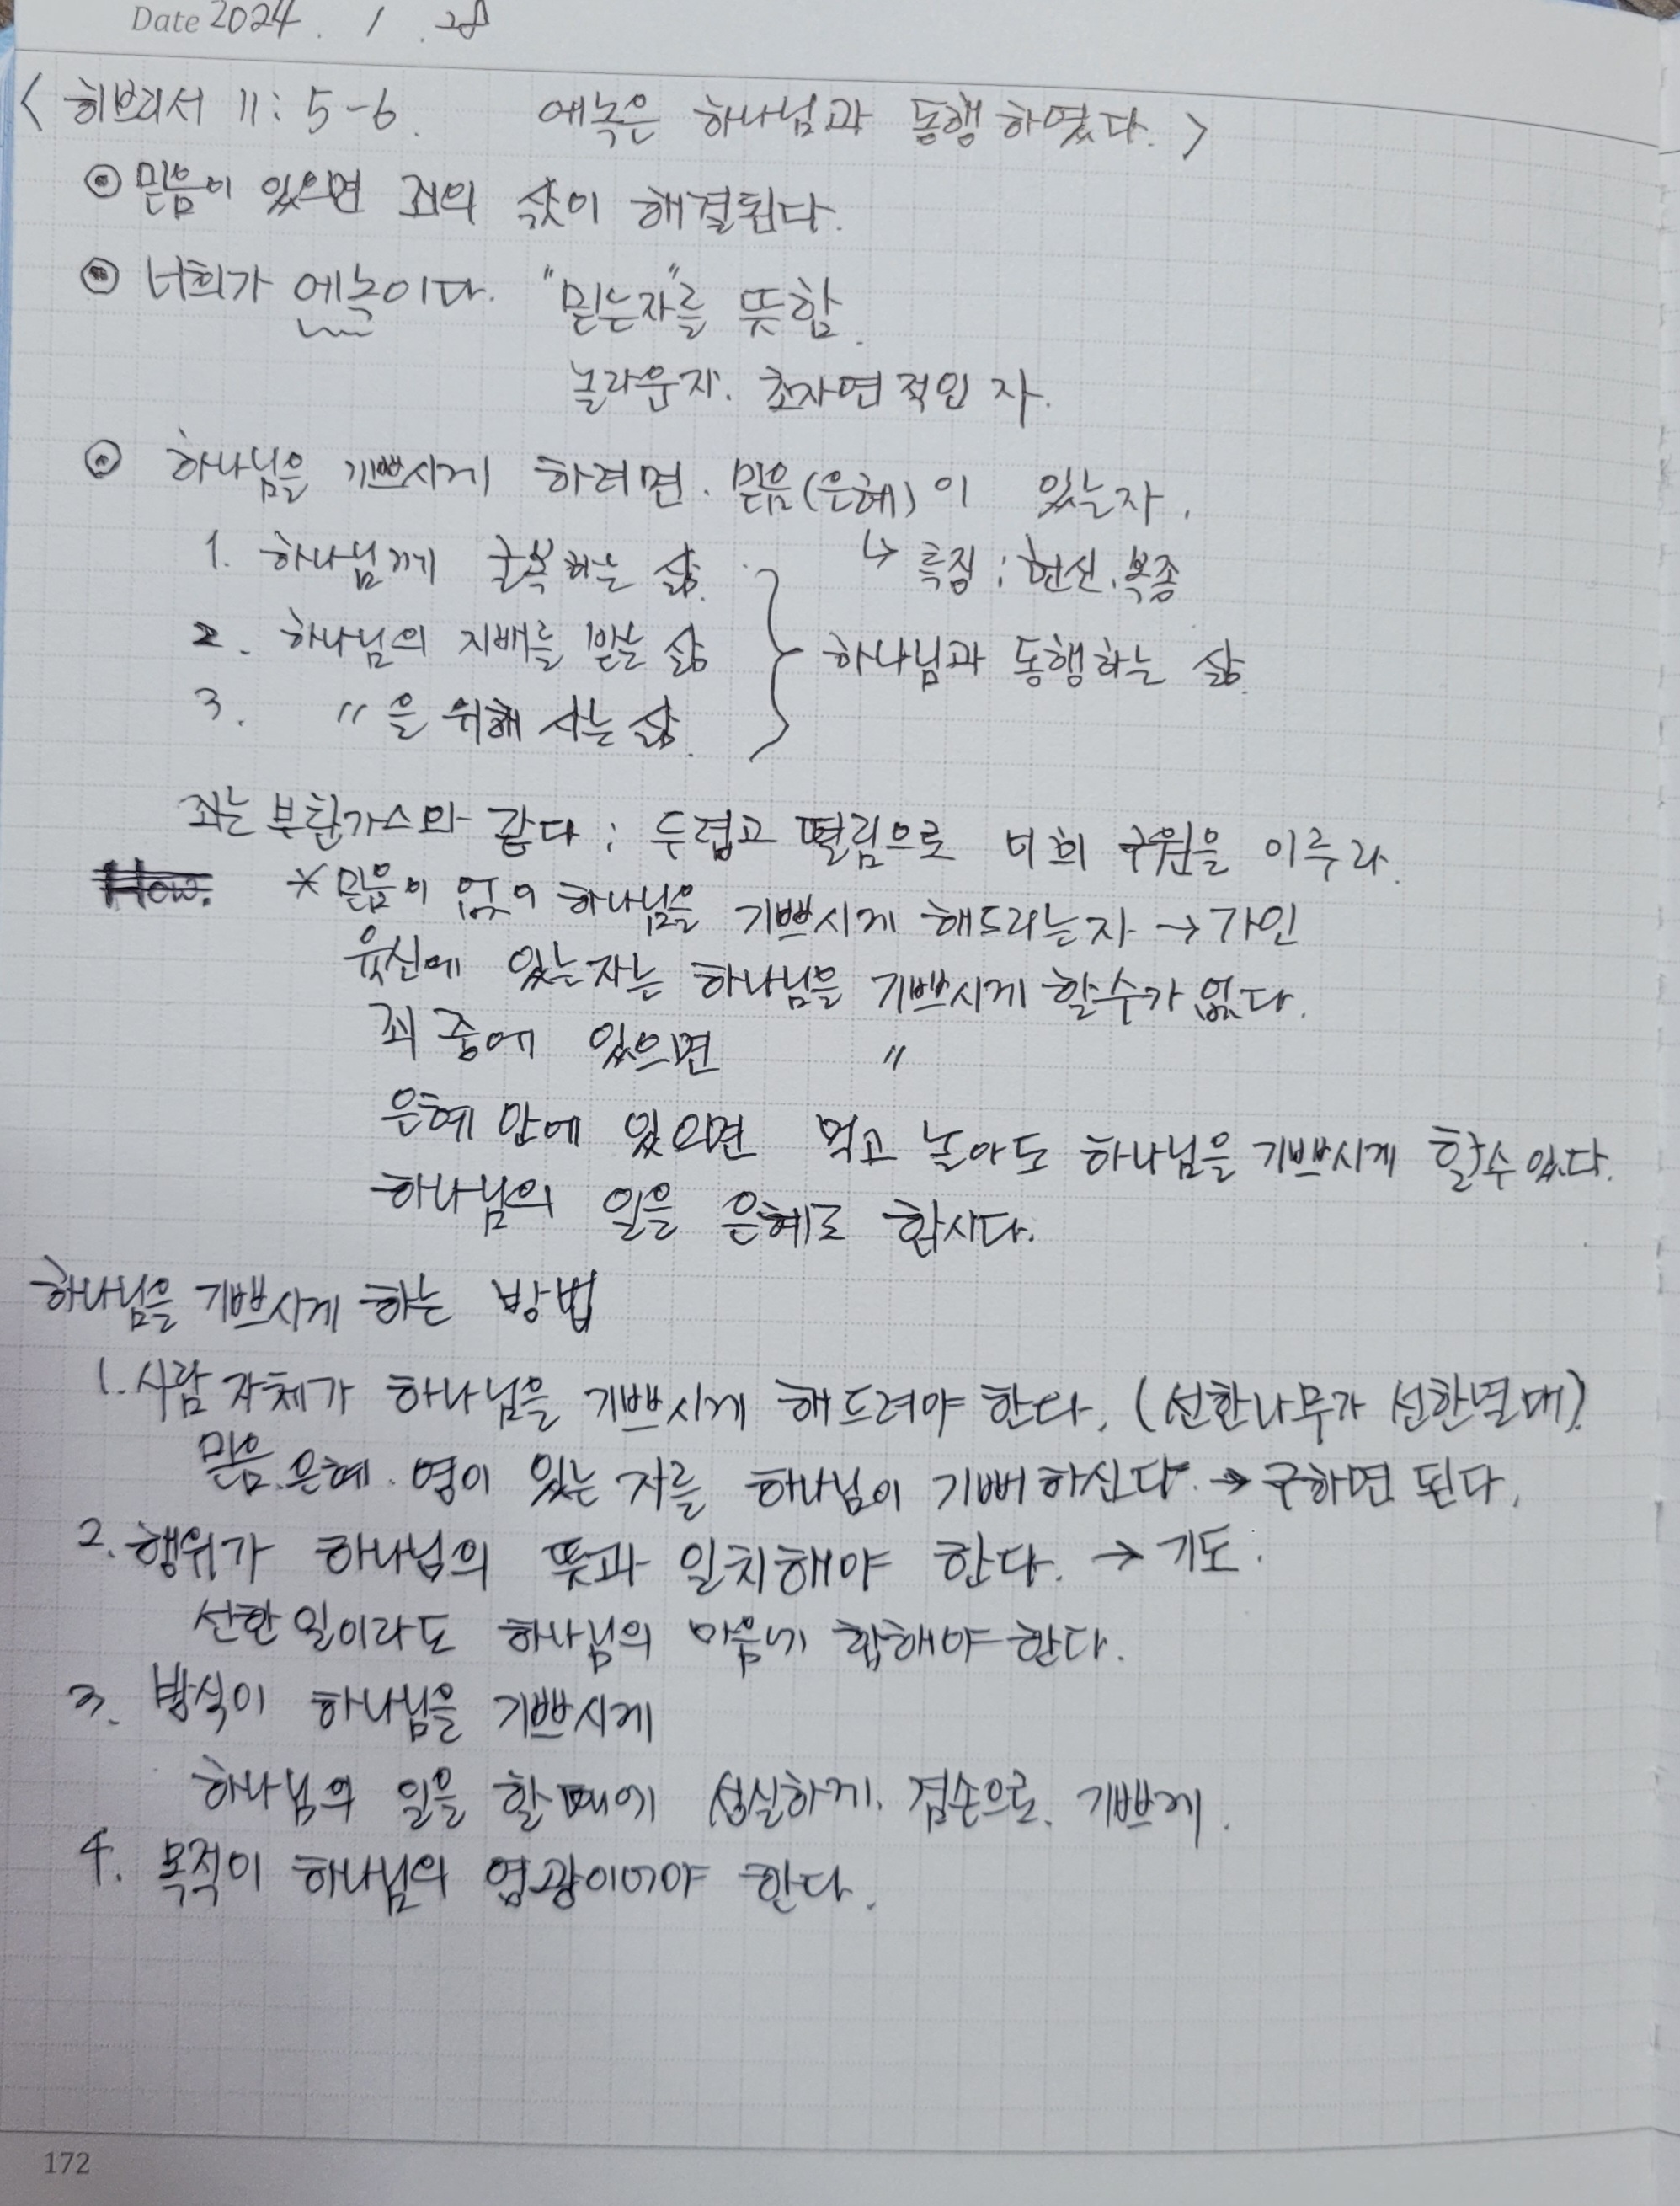 Date 2024. 1. 28
< 히브리서 11:5-6. 에녹은 하나님과 동행하였다. >
⊙ 믿음이 있으면 죄의 삯이 해결된다.
⊙ 너희가 에녹이다. "믿는자"를 뜻함.
놀라운자. 초자연적인 자.
⊙ 하나님을 기쁘시게 하려면. 믿음(은혜)이 있는자.
1. 하나님께 굴복하는 삶.
↳ 특징 : 헌신. 복종
2. 하나님의 지배를 받는 삶
하나님과 동행하는 삶.
3. 〃을 위해 사는 삶.
죄는 부탄가스와 같다 : 두렵고 떨림으로 너희 구원을 이루라.
How. * 믿음이 없이 하나님을 기쁘시게 해드리는자 → 가인
육신에 있는자는 하나님을 기쁘시게 할수가 없다.
죄 중에 있으면 〃
은혜 안에 있으면 먹고 놀아도 하나님을 기쁘시게 할수 있다.
하나님의 일을 은혜로 합시다.
하나님을 기쁘시게 하는 방법
1. 사람 자체가 하나님을 기쁘시게 해드려야 한다. (선한나무가 선한열매)
믿음. 은혜. 영이 있는 자를 하나님이 기뻐하신다. → 구하면 된다.
2. 행위가 하나님의 뜻과 일치해야 한다. → 기도.
선한 일이라도 하나님의 마음에 합해야 한다.
3. 방식이 하나님을 기쁘시게
하나님의 일을 할때에 성실하게. 겸손으로. 기쁘게.
4. 목적이 하나님의 영광이어야 한다.
172